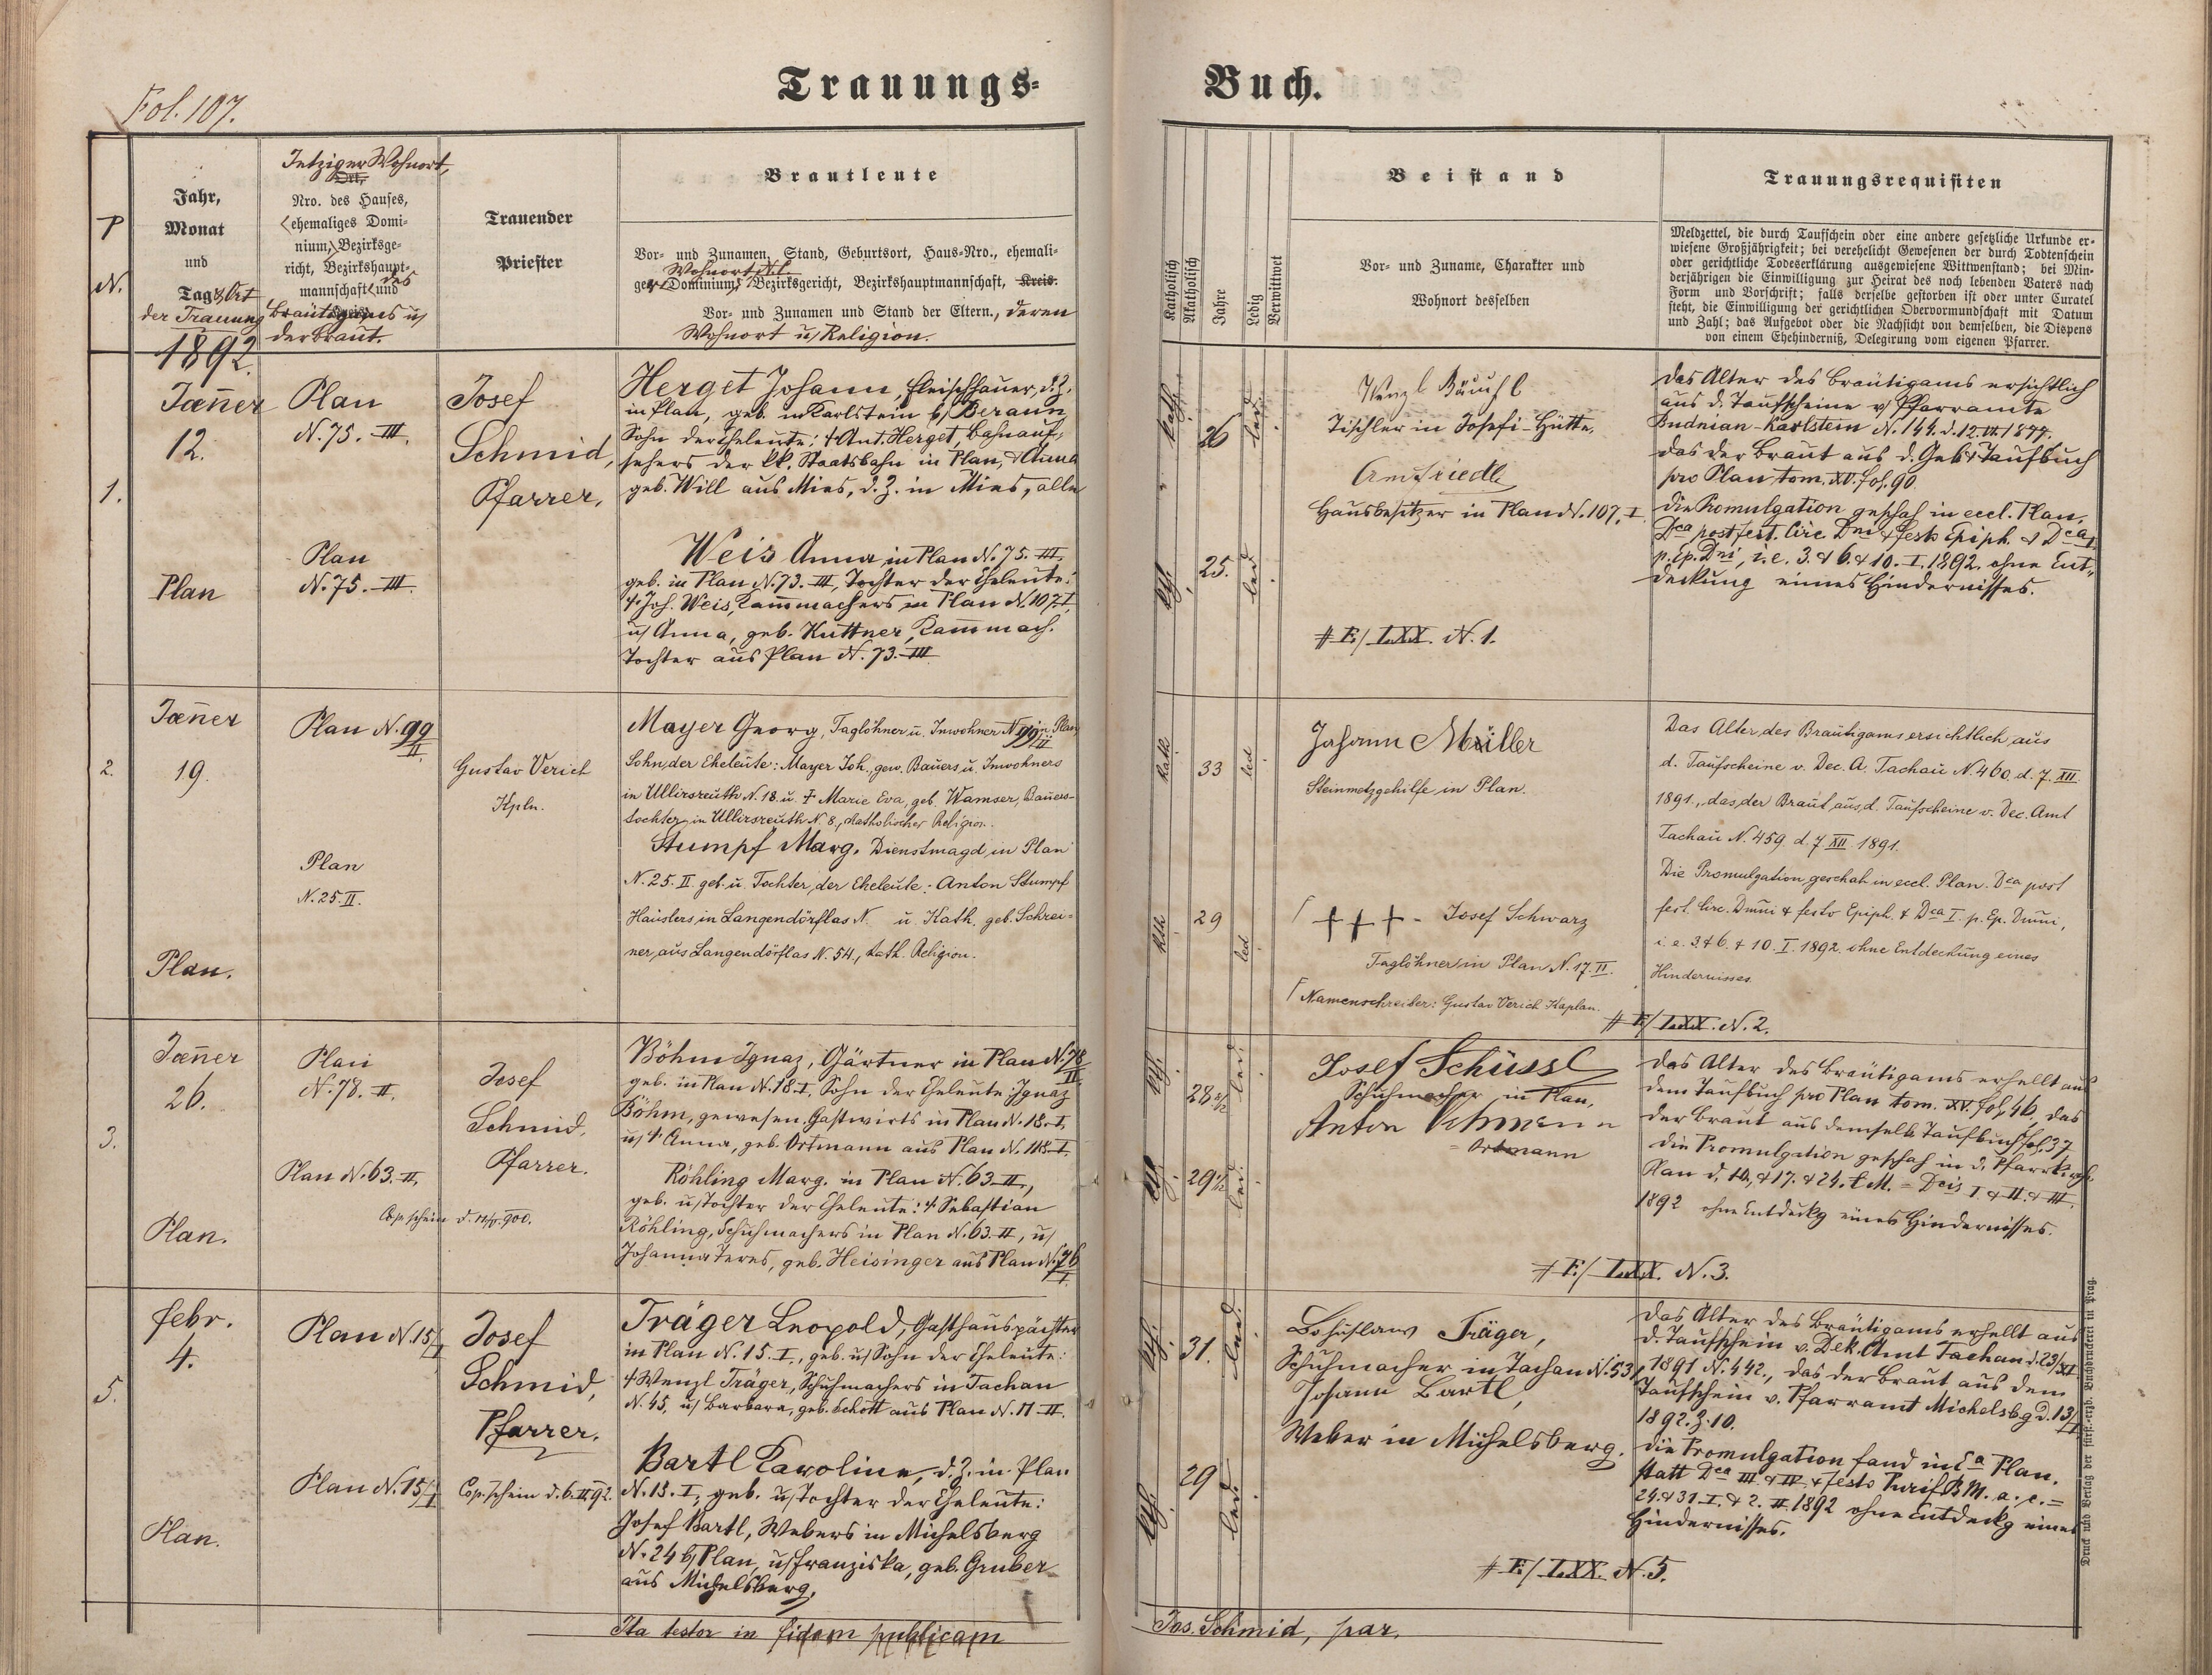 Fol. 107.
Trauungs-
Buch.
P
N.
Jahr,
Monat
und
Tag & Ort
der Trauung
Jetziger Wohnort,
Ort,
Nro. des Hauses,
ehemaliges Domi-
nium, Bezirksge-
richt, Bezirkshaupt-
mannschaft und des
Bräutigams u/
der Braut.
Trauender
Priester
Brautleute
Vor- und Zunamen, Stand, Geburtsort, Haus-Nro., ehemali-
Wohnort N.C.
ges Dominium, Bezirksgericht, Bezirkshauptmannschaft, Kreis.
Vor- und Zunamen und Stand der Eltern., deren
Wohnort u/ Religion.
Katholisch
Akatholisch
Jahre
Ledig
Verwittwet
Beistand
Vor- und Zuname, Charakter und
Wohnort desselben
Trauungsrequisiten
Meldzettel, die durch Taufschein oder eine andere gesetzliche Urkunde er-
wiesene Großjährigkeit; bei verehelicht Gewesenen der durch Todtenschein
oder gerichtliche Todeserklärung ausgewiesene Wittwenstand; bei Min-
derjährigen die Einwilligung zur Heirat des noch lebenden Vaters nach
Form und Vorschrift; falls derselbe gestorben ist oder unter Curatel
steht, die Einwilligung der gerichtlichen Obervormundschaft mit Datum
und Zahl; das Aufgebot oder die Nachsicht von demselben, die Dispens
von einem Ehehinderniß, Delegirung vom eigenen Pfarrer.
1892.
1.
Jänner
12.
Plan
Plan
N. 75. III.
Plan
N. 75. III.
Josef
Schmid,
Pfarrer.
Herget Johann, Fleischhauer, d. Z.
in Plan, geb. in Karlstein b/ Beraun,
Sohn der Eheleute: † Ant. Herget, Bahnauf-
sehers der kk. Staatsbahn in Plan, & Anna
geb. Will aus Mies, d. Z. in Mies, alle
Weis Anna in Plan N. 75. III.
geb. in Plan N. 73. III, Tochter der Eheleute:
† Joh. Weis, Kammmachers in Plan N. 107. I,
u/ Anna, geb. Kuttner, Kammmach.
Tochter aus Plan N. 73. III
kath.
26
led.
kth.
25.
led.
Wenzl Bäuchl
Tischler in Josefi-Hütte.
Ant Friedl
Hausbesitzer in Plan N. 107. I.
# F./ LXX. N. 1.
Das Alter des Bräutigams ersichtlich
aus d. Taufscheine v/ Pfarramte
Budnian-Karlstein N. 144. d. 12. VI. 1877.
das der Braut aus d. Geb & Taufbuch
pro Plan tom. XV. fol. 90.
Die Promulgation geschah in eccl. Plan.
Dca post fest. Circ. Dni & festo Epiph. & Dca I
p. Ep. Dni, i. e. 3. & 6. & 10. I. 1892. ohne Ent-
deckung eines Hindernisses.
2.
Jänner
19.
Plan.
Plan N. 99
II.
Plan
N. 25. II.
Gustav Verich
Kpln.
Mayer Georg, Taglöhner u. Inwohner N. 99 in Plan
II
Sohn der Eheleute: Mayer Joh., gew. Bauers u. Inwohners
in Ullirsreuth N. 18. u. † Marie Eva, geb. Wamser, Bauers-
tochter in Ullirsreuth N. 8., katholischer Religion.
Stumpf Marg. Dienstmagd in Plan
N. 25. II. geb. u. Tochter der Eheleute: Anton Stumpf
Häuslers in Langendörflas N. u. Kath. geb. Schrei-
ner, aus Langendörflas N. 54., kath. Religion.
kath
33
led
kth
29
led
Johann Müller
Steinmetzgehilfe in Plan.
+++ Josef Schwarz
Taglöhner in Plan N. 17. II.
Namenschreiber: Gustav Verich Kaplan.
# F./ LXX. N. 2.
Das Alter des Bräutigams ersichtlich aus
d. Taufscheine v. Dec. A. Tachau N. 460. d. 7. XII.
1891., das der Braut aus d. Taufscheine v. Dec. Amt
Tachau N. 459. d. 7. XII. 1891.
Die Promulgation geschah in eccl. Plan. Dca post
fest. Circ. Dmni & festo Epiph. & Dca I. p. Ep. Dmni,
i. e. 3. & 6. & 10. I. 1892. ohne Entdeckung eines
Hindernisses.
3.
Jänner
26.
Plan.
Plan
N. 78. II.
Plan N. 63. II.
Cop. schein d. 900.
Josef
Schmid,
Pfarrer.
Böhm Ignaz, Gärtner in Plan N. 78
II.
geb. in Plan N. 18. I, Sohn der Eheleute: Ignaz
Böhm, gewesen. Gastwirts in Plan N. 18. I,
u/ † Anna, geb. Ortmann aus Plan N. 118. I.
Röhling Marg. in Plan N. 63. II,
geb. u/ Tochter der Eheleute: † Sebastian
Röhling, Schuhmachers in Plan N. 63. II, u/
Johanna Teres, geb. Heisinger aus Plan N. 76
I.
kth.
28 1/2
led.
kth.
29 1/2
led.
Josef Schüssl
Schuhmacher in Plan,
Anton Ohmann
= Ortmann
# F./ LXX. N. 3.
Das Alter des Bräutigams erhellt aus
dem Taufbuch pro Plan tom. XV. fol. 46, das
der Braut aus demselb. Taufbuch fol. 37
Die Promulgation geschah in d. Pfarrkirch.
Plan d. 10. & 17. & 24. t. M. = Dcis I. & II. & III.
1892 ohne Entdeckg eines Hindernisses.
5.
Febr.
4.
Plan.
Plan N. 15/I
Plan N. 15/I
Josef
Schmid,
Pfarrer.
Cop. schein d. 6. II. 92.
Träger Leopold, Gasthauspächter
in Plan N. 15. I., geb. u/ Sohn der Eheleute:
† Wenzl Träger, Schuhmachers in Tachau
N. 45, u/ Barbara, geb. Schott aus Plan N. 11. II.
Bartl Karoline, d. Z. in Plan
N. 15. I, geb. u/ Tochter der Eheleute:
Josef Bartl, Webers in Michelsberg
N. 24 b/ Plan, u/ Franziska, geb. Gruber
aus Michelsberg.
kth.
31.
led.
kth.
29
led.
Bohuslaw Träger,
Schuhmacher in Tachau N. 53
Johann Bartl,
Weber in Michelsberg.
# F./ LXX. N. 5.
Das Alter des Bräutigams erhellt aus
d. Taufschein v. Dek. Amt Tachau d. 23/XI
1891 N. 442., das der Braut aus dem
Taufschein v. Pfarramt Michelsbg d. 13/I
1892. Z. 10.
Die Promulgation fand in Ea Plan.
statt Dca III. & IV. & festo Purif. B. M. a. c. =
24. & 31. I. & 2. II. 1892 ohne Entdeckg eines
Hindernisses.
Ita testor in fidem publicam
Jos. Schmid, par.
Druck und Verlag der fürst.-erzb. Buchdruckerei in Prag.